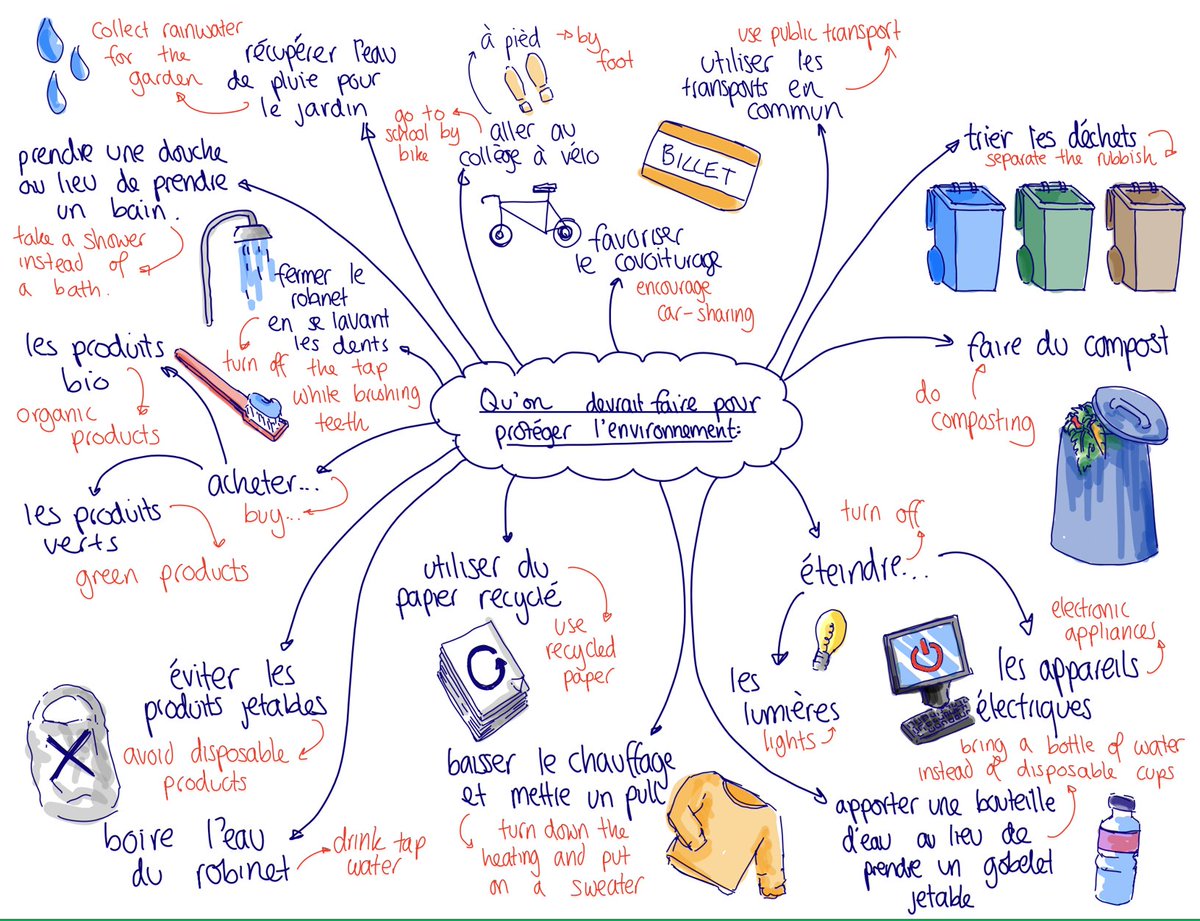 collect rainwater
for the
garden
récupérer l'eau
de pluie pour
le jardin
à pièd
by
foot
go to
school by
bike
aller au
collège à vélo
use public transport
utiliser les
transports en
commun
BILLET
trier les déchets
separate the rubbish
prendre une douche
au lieu de prendre
un bain.
take a shower
instead of
a bath.
favoriser
le covoiturage
encourage
car-sharing
fermer le
robinet
en se lavant
les dents
turn off the tap
while brushing
teeth
les produits
bio
organic
products
faire du compost
do
composting
Qu'on devrait faire pour
protéger l'environnement:
acheter...
buy...
les produits
verts
green products
utiliser du
papier recyclé
use
recycled
paper
turn off
éteindre...
les
lumières
lights
electronic
appliances
les appareils
électriques
éviter les
produits jetables
avoid disposable
products
baisser le chauffage
et mettre un pull
turn down the
heating and put
on a sweater
bring a bottle of water
instead of disposable cups
apporter une bouteille
d'eau au lieu de
prendre un gobelet
jetable
boire l'eau
du robinet
drink tap
water